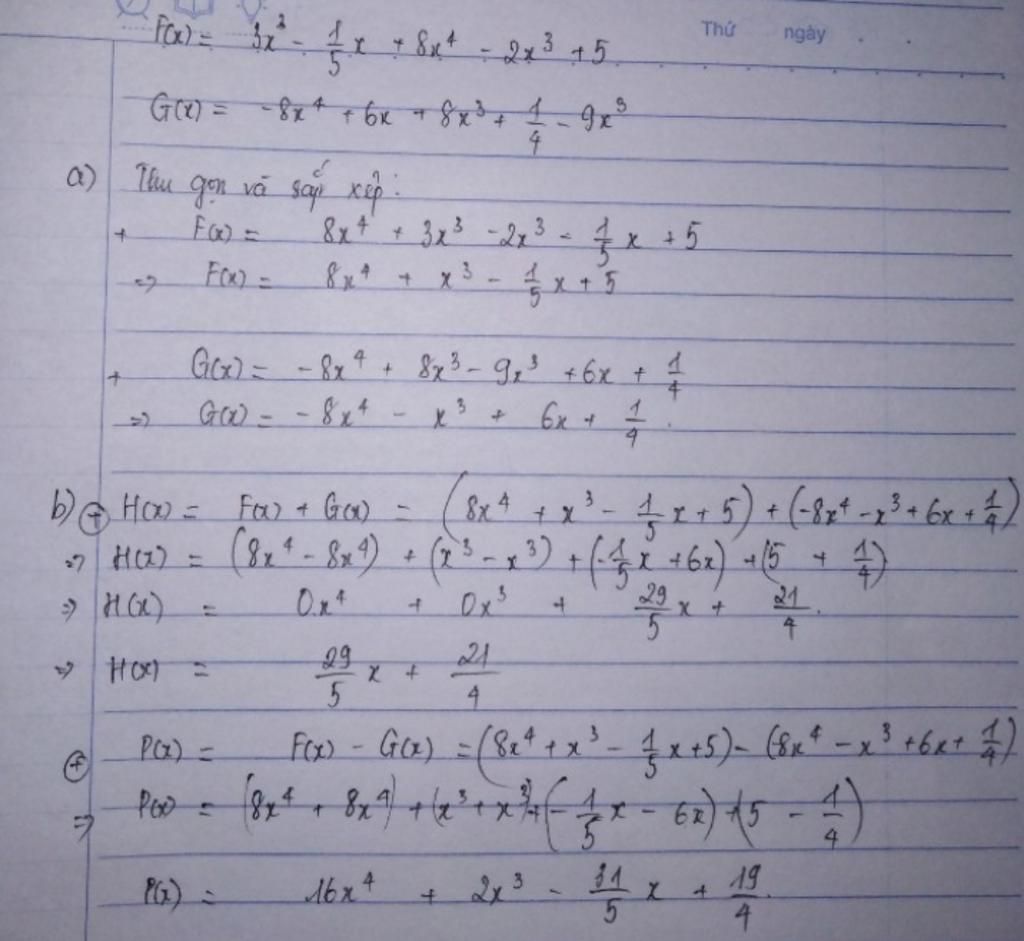 Thứ ngày
F(x) = 3x³ - 1/5 x + 8x⁴ - 2x³ + 5
G(x) = -8x⁴ + 6x + 8x³ + 1/4 - 9x³
a) Thu gọn và sắp xếp:
+ F(x) = 8x⁴ + 3x³ - 2x³ - 1/5 x + 5
=> F(x) = 8x⁴ + x³ - 1/5 x + 5
+ G(x) = -8x⁴ + 8x³ - 9x³ + 6x + 1/4
=> G(x) = -8x⁴ - x³ + 6x + 1/4.
b) ⊕ H(x) = F(x) + G(x) = (8x⁴ + x³ - 1/5 x + 5) + (-8x⁴ - x³ + 6x + 1/4)
=> H(x) = (8x⁴ - 8x⁴) + (x³ - x³) + (-1/5 x + 6x) + (5 + 1/4)
=> H(x) = 0x⁴ + 0x³ + 29/5 x + 21/4.
=> H(x) = 29/5 x + 21/4
⊕ P(x) = F(x) - G(x) = (8x⁴ + x³ - 1/5 x + 5) - (-8x⁴ - x³ + 6x + 1/4)
=> P(x) = (8x⁴ + 8x⁴) + (x³ + x³) + (-1/5 x - 6x) + (5 - 1/4)
P(x) = 16x⁴ + 2x³ - 31/5 x + 19/4.